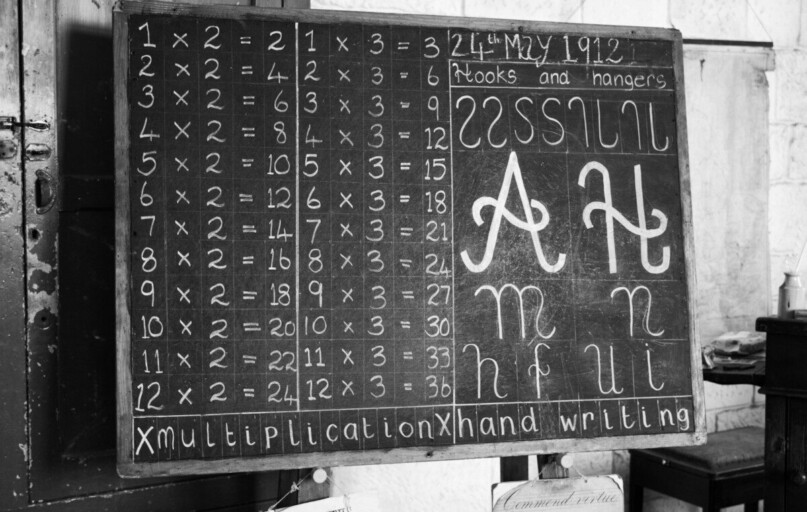 1 × 2 = 2
2 × 2 = 4
3 × 2 = 6
4 × 2 = 8
5 × 2 = 10
6 × 2 = 12
7 × 2 = 14
8 × 2 = 16
9 × 2 = 18
10 × 2 = 20
11 × 2 = 22
12 × 2 = 24
1 × 3 = 3
2 × 3 = 6
3 × 3 = 9
4 × 3 = 12
5 × 3 = 15
6 × 3 = 18
7 × 3 = 21
8 × 3 = 24
9 × 3 = 27
10 × 3 = 30
11 × 3 = 33
12 × 3 = 36
24th MAY 1912
Hooks and hangers
A H
m n
h f u i
X multiplication X hand writing
Commend virtue